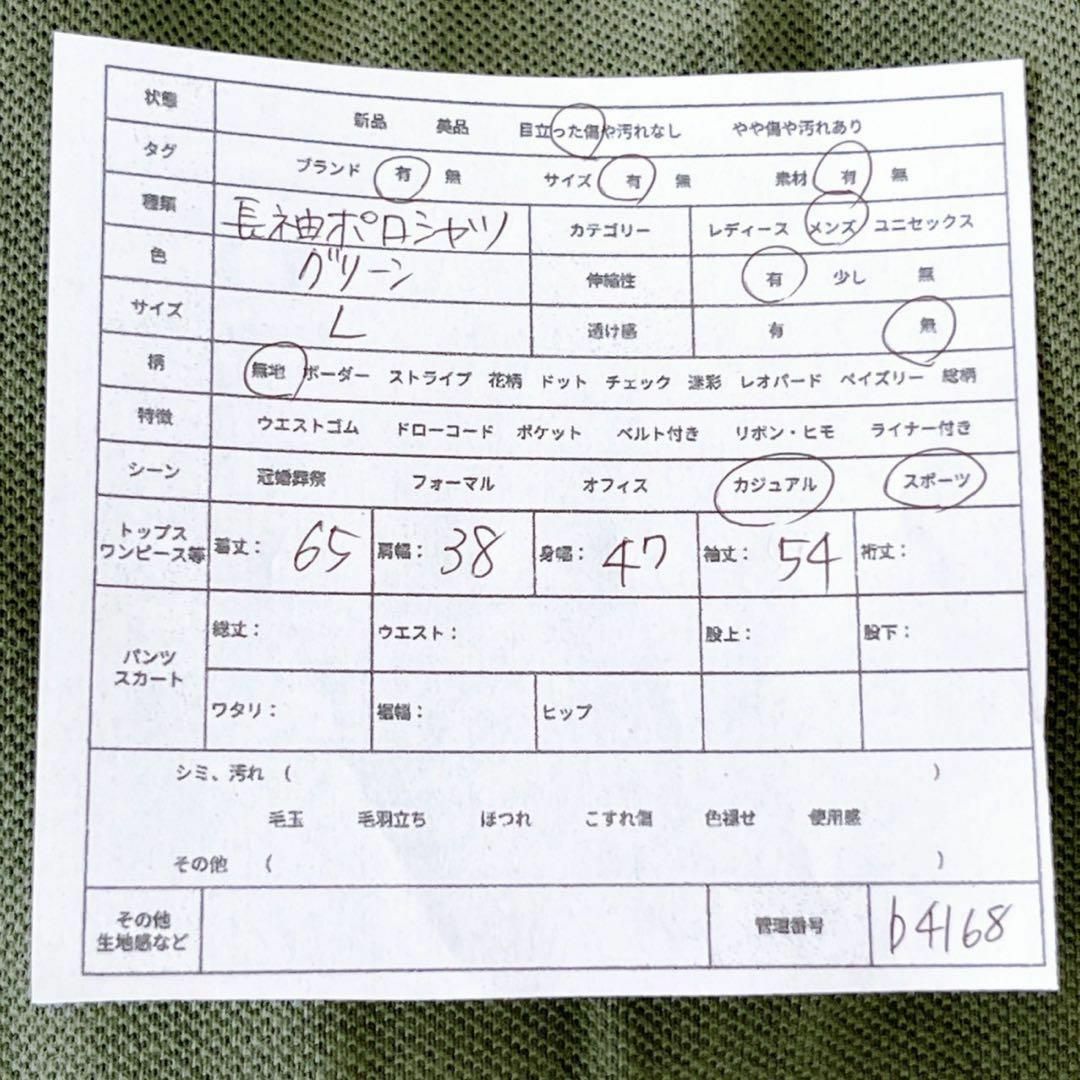 状態 新品 美品 目立った傷や汚れなし やや傷や汚れあり
タグ ブランド 有 無 サイズ 有 無 素材 有 無
種類 長袖ポロシャツ カテゴリー レディース メンズ ユニセックス
色 グリーン 伸縮性 有 少し 無
サイズ L 透け感 有 無
柄 無地 ボーダー ストライプ 花柄 ドット チェック 迷彩 レオパード ペイズリー 総柄
特徴 ウエストゴム ドローコード ポケット ベルト付き リボン・ヒモ ライナー付き
シーン 冠婚葬祭 フォーマル オフィス カジュアル スポーツ
トップス
ワンピース等 着丈: 65 肩幅: 38 身幅: 47 袖丈: 54 裄丈:
パンツ
スカート
総丈: ウエスト: 股上: 股下:
ワタリ: 裾幅: ヒップ
シミ、汚れ ( )
毛玉 毛羽立ち ほつれ こすれ傷 色褪せ 使用感
その他 ( )
その他
生地感など 管理番号 b4168